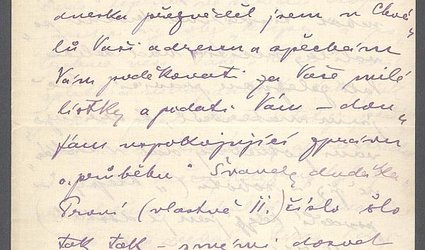 dneska přezvěděl jsem u Chvá-
lů Vaši adresu a spěchám
Vám poděkovati za Vaše milé
lístky a podati Vám – dou-
fám uspokojující zprávu
o „průběhu“ Švandy dudáka
První (vlastně II.) číslo šlo
tak tak –